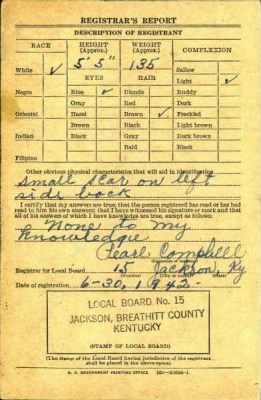 REGISTRAR'S REPORT
DESCRIPTION OF REGISTRANT
RACE HEIGHT (Approx.) WEIGHT (Approx.) COMPLEXION
5' 5" 135
White ✓ Sallow
EYES HAIR Light ✓
Negro Blue ✓ Blonde Ruddy
Gray Red Dark
Oriental Hazel Brown ✓ Freckled
Brown Black Light brown
Indian Black Gray Dark brown
Bald Black
Filipino
Other obvious physical characteristics that will aid in identification
small scar on left
side back
I certify that my answers are true; that the person registered has read or has had
read to him his own answers; that I have witnessed his signature or mark and that
all of his answers of which I have knowledge are true, except as follows:
None to my
knowledge
Pearl Campbell
Registrar for Local Board 15 Jackson, Ky
Date of registration 6-30, 1942-
LOCAL BOARD No. 15
JACKSON, BREATHITT COUNTY
KENTUCKY
(STAMP OF LOCAL BOARD)
(The stamp of the Local Board having jurisdiction of the registrant
shall be placed in the above space.)
U. S. GOVERNMENT PRINTING OFFICE